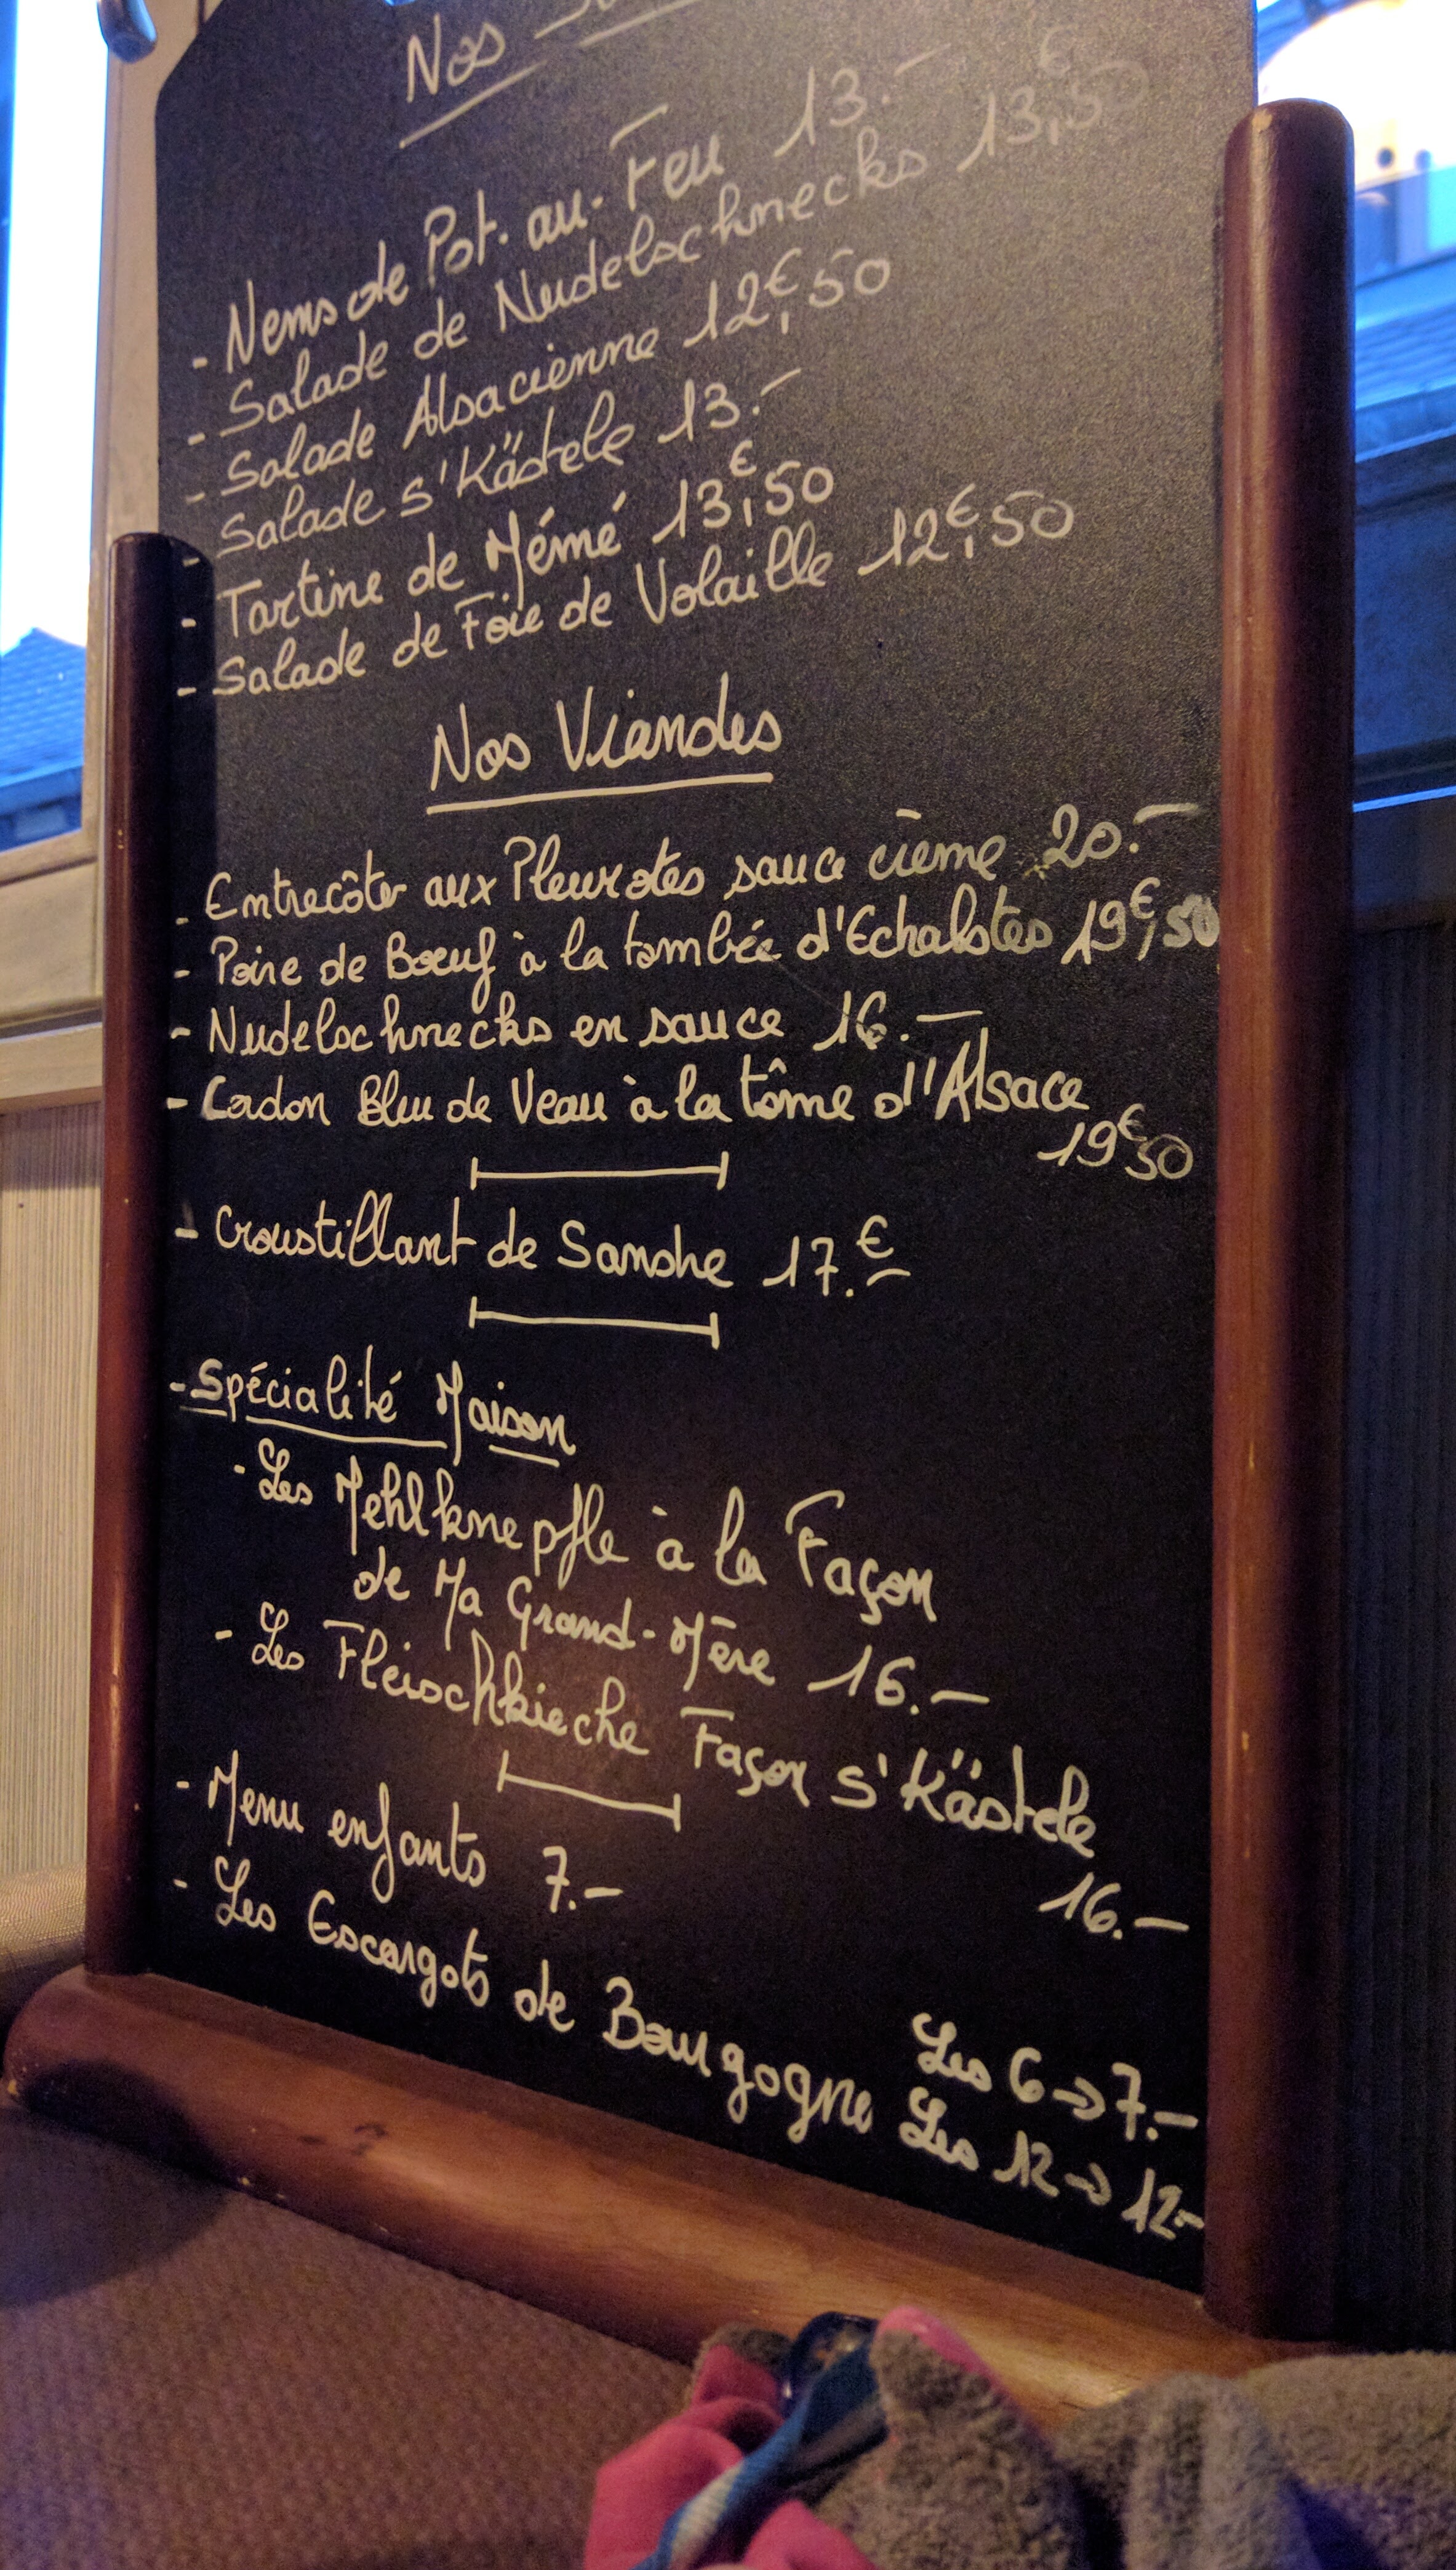 Nos
- Nems de Pot-au-Feu 13.-
- Salade de Nudelschnecks 13,€50
- Salade Alsacienne 12,€50
- Salade s'Kästele 13.-
- Tartine de Mémé 13,€50
- Salade de Foie de Volaille 12,€50
Nos Viandes
- Entrecôte aux Pleurotes sauce crème 20.-
- Poire de Boeuf à la tombée d'Echalotes 19,€50
- Nudelschnecks en sauce 16.-
- Cordon Bleu de Veau à la tôme d'Alsace
19€50
- Croustillant de Sandre 17.€-
- Spécialité Maison
- Les Mehlknepfle à la Façon
de Ma Grand-Mère 16.-
- Les Fleischkieche Façon s'Kästele
16.-
- Menu enfants 7.-
- Les Escargots de Bourgogne Les 6 → 7.-
Les 12 → 12.-